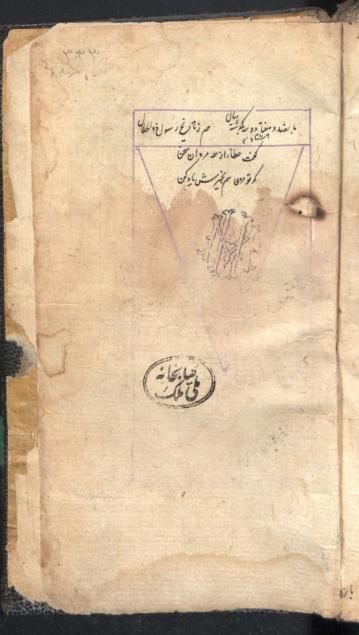 پانصد و هفتاد و سه بگذشته سال هم ز تاریخ رسول ذوالجلال
گفت عطار از همه مردان سخن
گر تو مردی هم بخیرش یاد کن
کتابخانه
ملی ملک